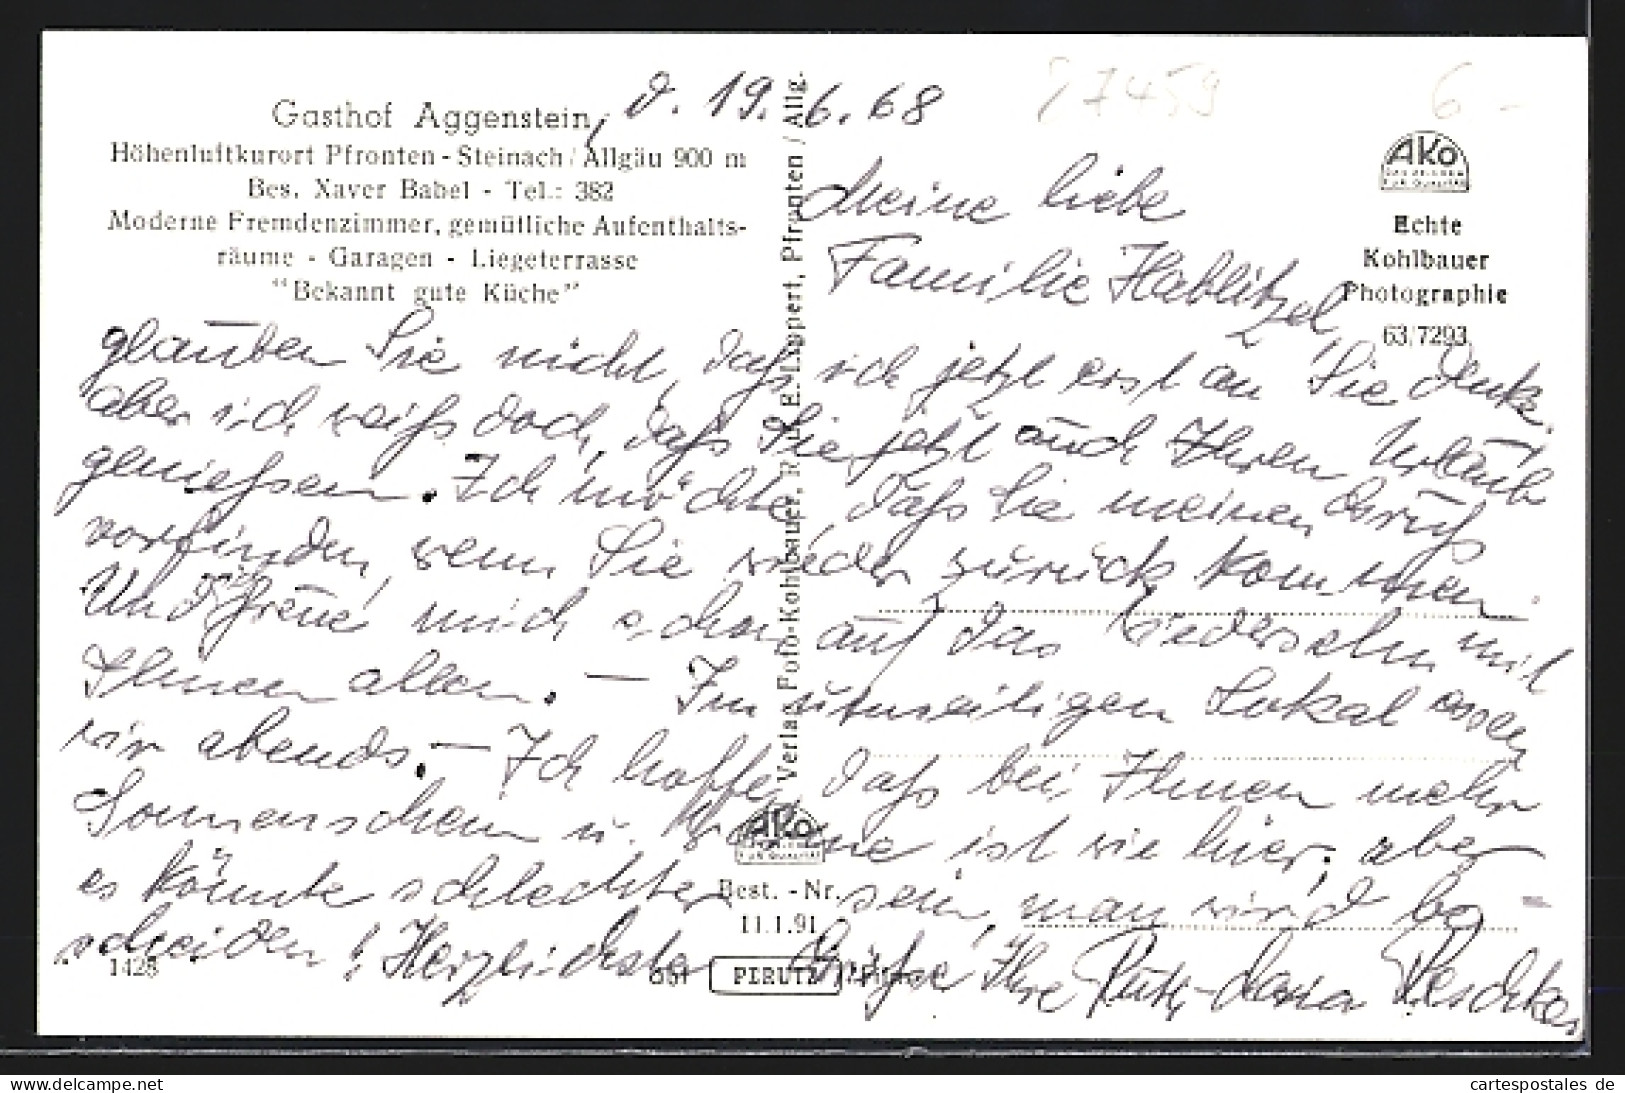 Gasthof Aggenstein, d. 19.6.68
Höhenluftkurort Pfronten-Steinach/Allgäu 900 m
Bes. Xaver Babel - Tel.: 382
Moderne Fremdenzimmer, gemütliche Aufenthalts-
räume - Garagen - Liegeterrasse
"Bekannt gute Küche"
27459
6 -
AKO
Echte
Kohlbauer
Photographie
63/7293
Meine liebe
Familie Hablitzel,
glauben Sie nicht, daß ich jetzt erst an Sie denke,
aber ich weiß doch, daß Sie jetzt auch Ihren Urlaub
genießen. Ich möchte, daß Sie meinen Gruß
vorfinden, wenn Sie wieder zurück kommen.
Und freue mich schon auf das Wiedersehn mit
Ihnen allen. — Im umseitigen Lokal essen
wir abends. — Ich hoffe, daß bei Ihnen mehr
Sonnenschein u. Wärme ist wie hier, aber
es könnte schlechter sein, man wird be-
scheiden! Herzlichste Grüße Ihre Ruth-Maria
Verlag Foto-Kohlbauer, E. Lippert, Pfronten / Allg.
AKO
Best.-Nr.
11.1.91
1428
PERUTZ
cartespostales de